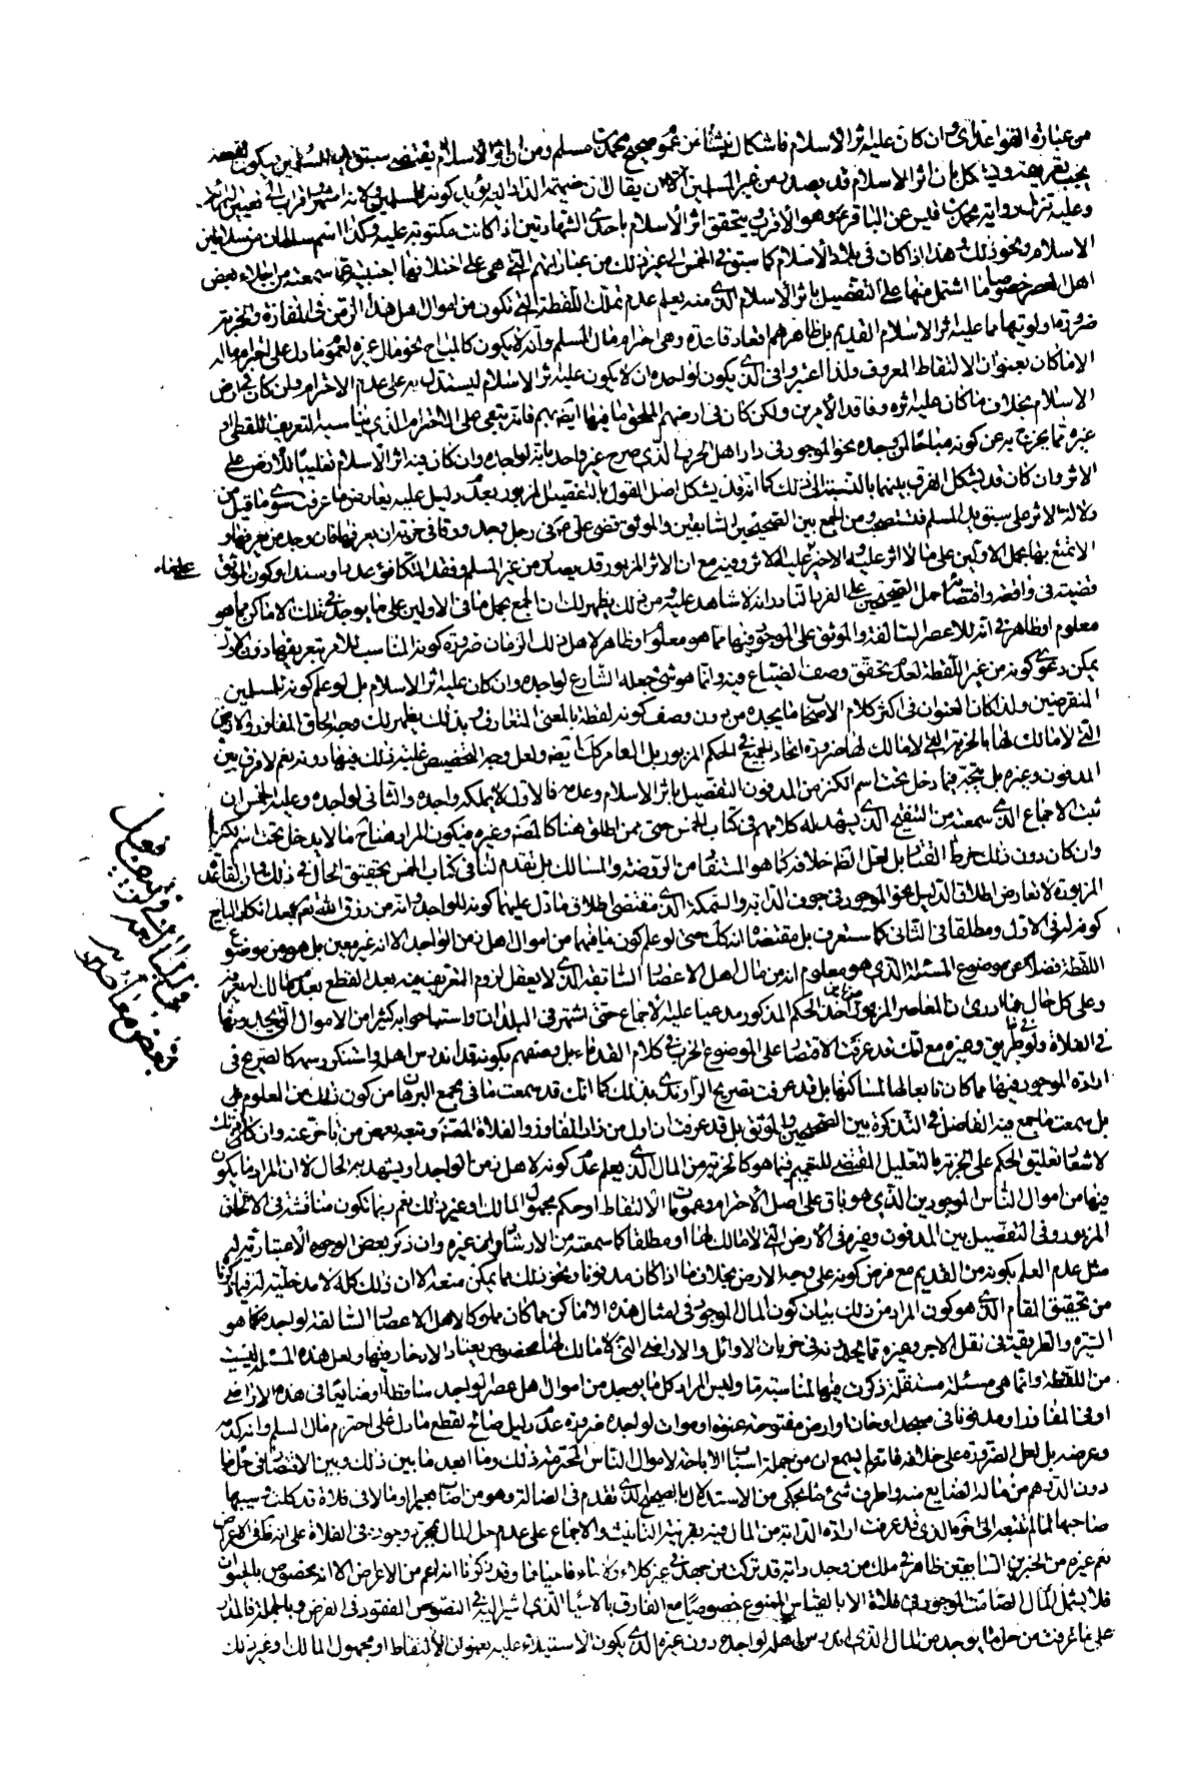 من عبارة القواعد اى وان كان عليه اثر الاسلام فاشكال ينشأ من عموم صحيح محمد بن مسلم ومن ان اثر الاسلام يقتضى سبق يد المسلمين فيكون لقطة
يجب تعريفه وفيه كل بان اثر الاسلام قد يصدر من غير المسلمين الا ان يقال ان ضميمة الدار اليه يؤيد كونه للمسلمين
وعليه تنزل رواية محمد بن قيس عن الباقر وهو الاقرب ويتحقق اثر الاسلام باحدى الشهادتين اذا كانت مكتوبة عليه وكذا اسم سلطان من سلاطين
الاسلام ونحو ذلك وهذا اذا كان فى بلاد الاسلام كما سبق فى الخمس الى غير ذلك من عباراتهم التى هى على اختلافها اجنبية عما سمعته من اجلاء بعض
اهل العصر خصوصا ما اشتمل منها على التفصيل باثر الاسلام الذى منه يعلم عدم تملك اللقطة التى تكون من اموال اهل هذا الزمن فى المفازة والخربة
ضرورة اولويتها مما عليه اثر الاسلام القديم بل ظاهرهم انعقاد قاعدة وهى احترام مال المسلم وانه لا يكون كالمباح نحو مال غيره لعموم ما دل على احترام ماله
الا ما كان بعنوان الالتقاط المعروف ولذا اعتبروا فى الذى يكون لواجده ان لا يكون عليه اثر الاسلام ليستدل به على عدم الاحترام وان كان فى ارض
الاسلام بخلاف ما كان عليه اثره وفاقد الامرين ولكن كان فى ارضهم الملحق ما فيها ايضا بهم فانه يبقى على الاحترام الذى يناسبه التعريف للقطة او
غيره مما يخرج به عن كونه مباحا لمن وجده نحو الموجود فى دار اهل الحرب الذى صرح غير واحد بانه لواجده وان كان فيه اثر الاسلام تغليبا للارض على
الاثر وان كان قد يشكل الفرق بينهما بالنسبة الى ذلك كما انه قد يشكل اصل القول بالتفصيل المزبور بعدم دليل عليه يعارض ما عرفت سوى ما قيل من
دلالة الاثر على سبق يد المسلم فتستصحب ومن الجمع بين الصحيحين السابقين والموثق قضى على ع فى رجل وجد ورقا فى خربة ان يعرفها فان وجد من يعرفها و
الا تمتع بها بحمل الاولين على ما لا اثر عليه والاخير على ذى الاثر وفيه مع ان الاثر المزبور قد يصدر من غير المسلم وفقد التكافؤ عددا وسندا وكون الموثق
قضية فى واقعة واقتضاء حمل الصحيحين على الفرد النادر انه لا شاهد عليه ومن ذلك يظهر لك ان الجمع بحمل ما فى الاولين على ما يوجد فى تلك الاماكن مما هو
معلوم او ظاهر فى انه للاعصر السالفة والموثق على الموجود فيها مما هو معلوم او ظاهر لاهل ذلك الزمان ضرورة كونه المناسب للامر بتعريفها دون الاول
يمكن دعوى كونه من غير اللقطة لعدم تحقق وصف الضياع فيه وانما هو شىء جعله الشارع لواجده وان كان عليه اثر الاسلام بل لو علم كونه للمسلمين
المنقرضين ولذا كان العنوان فى اكثر كلام الاصحاب ما يجده من دون وصف كونه لقطة بالمعنى المتعارف وبذلك يظهر لك وجه الحاق المفاوز والارض
التى لا مالك لها بالخربة التى لا مالك لها ضرورة اتحاد الجميع فى الحكم المزبور بل العامر كك ايضا ولعل وجه التخصيص غلبة ذلك فيها دونه نعم لا فرق بين
المدفون وغيره بل يتجه فيما دخل تحت اسم الكنز من المدفون التفصيل باثر الاسلام وعدمه فالاول لا يملكه واجده والثانى لواجده وعليه الخمس ان
ثبت الاجماع الذى سمعته من التنقيح الذى يشهد له كلامهم فى كتاب الخمس حتى ممن اطلق هنا كالمصنف وغيره فيكون المراد هنا ح ما لا يدخل تحت اسم الكنز
وان كان دون ذلك خرط القتاد بل لعل الظ خلافه كما هو المستفاد من الروضة والمسالك بل تقدم لنا فى كتاب الخمس تحقيق الحال فى ذلك وان القاعدة
المزبورة لا تعارض اطلاق الدليل نحو الموجود فى جوف الدابة والسمكة الذى مقتضى اطلاق ما دل عليهما كونه للواجد وانه من رزق الله نعم بعد انكار البايع
كونه له فى الاول ومطلقا فى الثانى كما ستعرف بل مقتضاه انه كك حتى لو علم كون ما فيهما من اموال اهل زمن الواجد الا انه غير معين بل هو من موضوع
اللقطة فضلا عن موضوع المسئلة الذى هو معلوم انه من مال اهل الاعصار السابقة الذى لا يعقل لزوم التعريف فيه بعد القطع بعدم مالك له يعرفه
وعلى كل حال فما ادرى ان المعاصر المزبور من اين اخذ الحكم المذكور مدعيا عليه الاجماع حتى اشتهر فى البلدان واستباحوا به كثيرا من الاموال التى يجدونها
فى الفلاة ولو فى طريق وغيره مع انك قد عرفت الاقتصار على الموضوع الخربة فى كلام القدماء بل وصفهم بكونه قد اندرس اهله واستنكر رسمه كالصريح فى
ارادة الموجود فيها مما كان تابعا لها لمساكنها بل قد عرفت تصريح الراوندى بذلك كما انك قد سمعت ما فى مجمع البرهان من كون ذلك من المعلوم
بل سمعت ما جمع فيه الفاضل فى التذكرة بين الصحيحين والموثق بل قد عرفت ان اول من زاد المفاوز والفلاة المصنف وتبعه بعض من تاخر عنه وان كان ذلك
لاشعار تعليق الحكم على الخربة بالتعليل المقتضى للتعميم فيما هو كالخربة من المال الذى يعلم عدم كونه لاهل زمن الواجد او يشهد به الحال لا ان المراد ما يكون
فيها من اموال الناس الموجودين الذى هو باق على اصل الاحترام وعمومات الالتقاط او حكم مجهول المالك او غير ذلك نعم ربما تكون مناقشة فى الالحاق
المزبور وفى التفصيل بين المدفون وغيره فى الارض التى لا مالك لها او مطلقا كما سمعته من الارشاد وغيره وان ذكر بعض الوجوه الاعتبارية له
مثل عدم العلم بكونه من القديم مع فرض كونه على وجه الارض بخلاف ما اذا كان مدفونا ونحو ذلك مما يمكن منعه الا ان ذلك كله لا مدخلية له فيما ذكرنا
من تحقيق المقام الذى هو كون المراد من ذلك بيان كون المال الموجود فى امثال هذه الاماكن مما كان مملوكا لاهل الاعصار السالفة لواجده كما هو
السيرة والطريقة فى نقل الاجر وغيره مما يجدونه فى خربات الاوائل والاراضى التى لا مالك لها مخصوص يعتاد الادخار فيها ولعل هذه المسئلة ليست
من اللقطة وانما هى مسئلة مستقلة ذكرت فيها لمناسبة ما وليس المراد كل ما يوجد من اموال اهل عصر الواجد ساقطا او ضائعا فى هذه الاراضى
او فى المفاوز او مدفونا فى مسجد او خان وارض مفتوحة عنوة او موات لواجده ضرورة عدم دليل صالح لقطع ما دل على احترام مال المسلم وانه كدمه
وعرضه بل لعل الضرورة على خلافه فانه لم يسمع ان من جملة اسباب الاباحة لاموال الناس المحترمة ذلك وما ابعد ما بين ذلك وبين الاقتصار فى حل ما
دون الدرهم من ماله الضايع منه واطرف شىء ما يحكى من الاستدلال بالصحيح الذى تقدم فى الضالة وهو من اصاب بعيرا او مالا فى فلاة قد كلت وسيبها
صاحبها لما لم تتبعه الى اخره الذى قد عرفت ارادة الدابة من المال فيه بقرينة التانيث والاجماع على عدم حل المال بمجرد وجوده فى الفلاة على انه فى الاعراض
نعم غيره من الخبرين السابقين ظاهر فى ملك من وجد دابة قد تركت من جهد فى غير كلاء ولا ماء فاحياها وقد ذكرنا انه اعم من الاعراض الا انه مخصوص بالحيوان
فلا يشمل المال الصامت الموجود فى فلاة الا بالقياس الممنوع خصوصا مع الفارق بالاشياء الذى اشير اليه فى النصوص المفقود فى الفرض وبالجملة فالمدار
على ما عرفت من حل ما يوجد من المال الذى اندرس اهله لواجده دون غيره الذى يكون الاستيلاء عليه بعنوان الالتقاط او مجهول المالك او غير ذلك